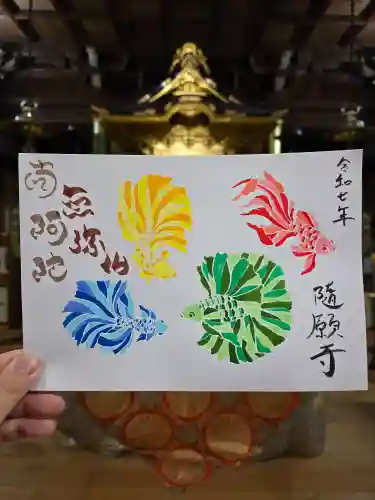 令和七年
南無
阿弥
陀仏
随願寺